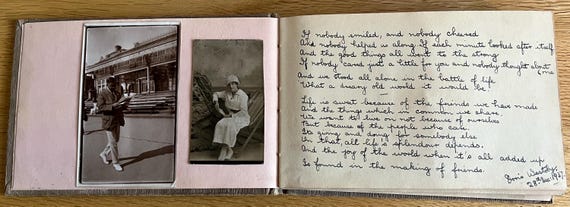 If nobody smiled, and nobody cheered
And nobody helped us along. If each minute looked after itself
And the good things all went to the strong
If nobody cared just a little for you and nobody thought about me
And we stood all alone in the battle of life
What a dreary old world it would be!
Life is sweet because of the friends we have made
And the things which in common we share.
We want to live on not because of ourselves
But because of the people who care.
It's giving and doing for somebody else
On that all life's splendour depends.
And the joy of the world when it's all added up
Is found in the making of friends.
Doris
28th